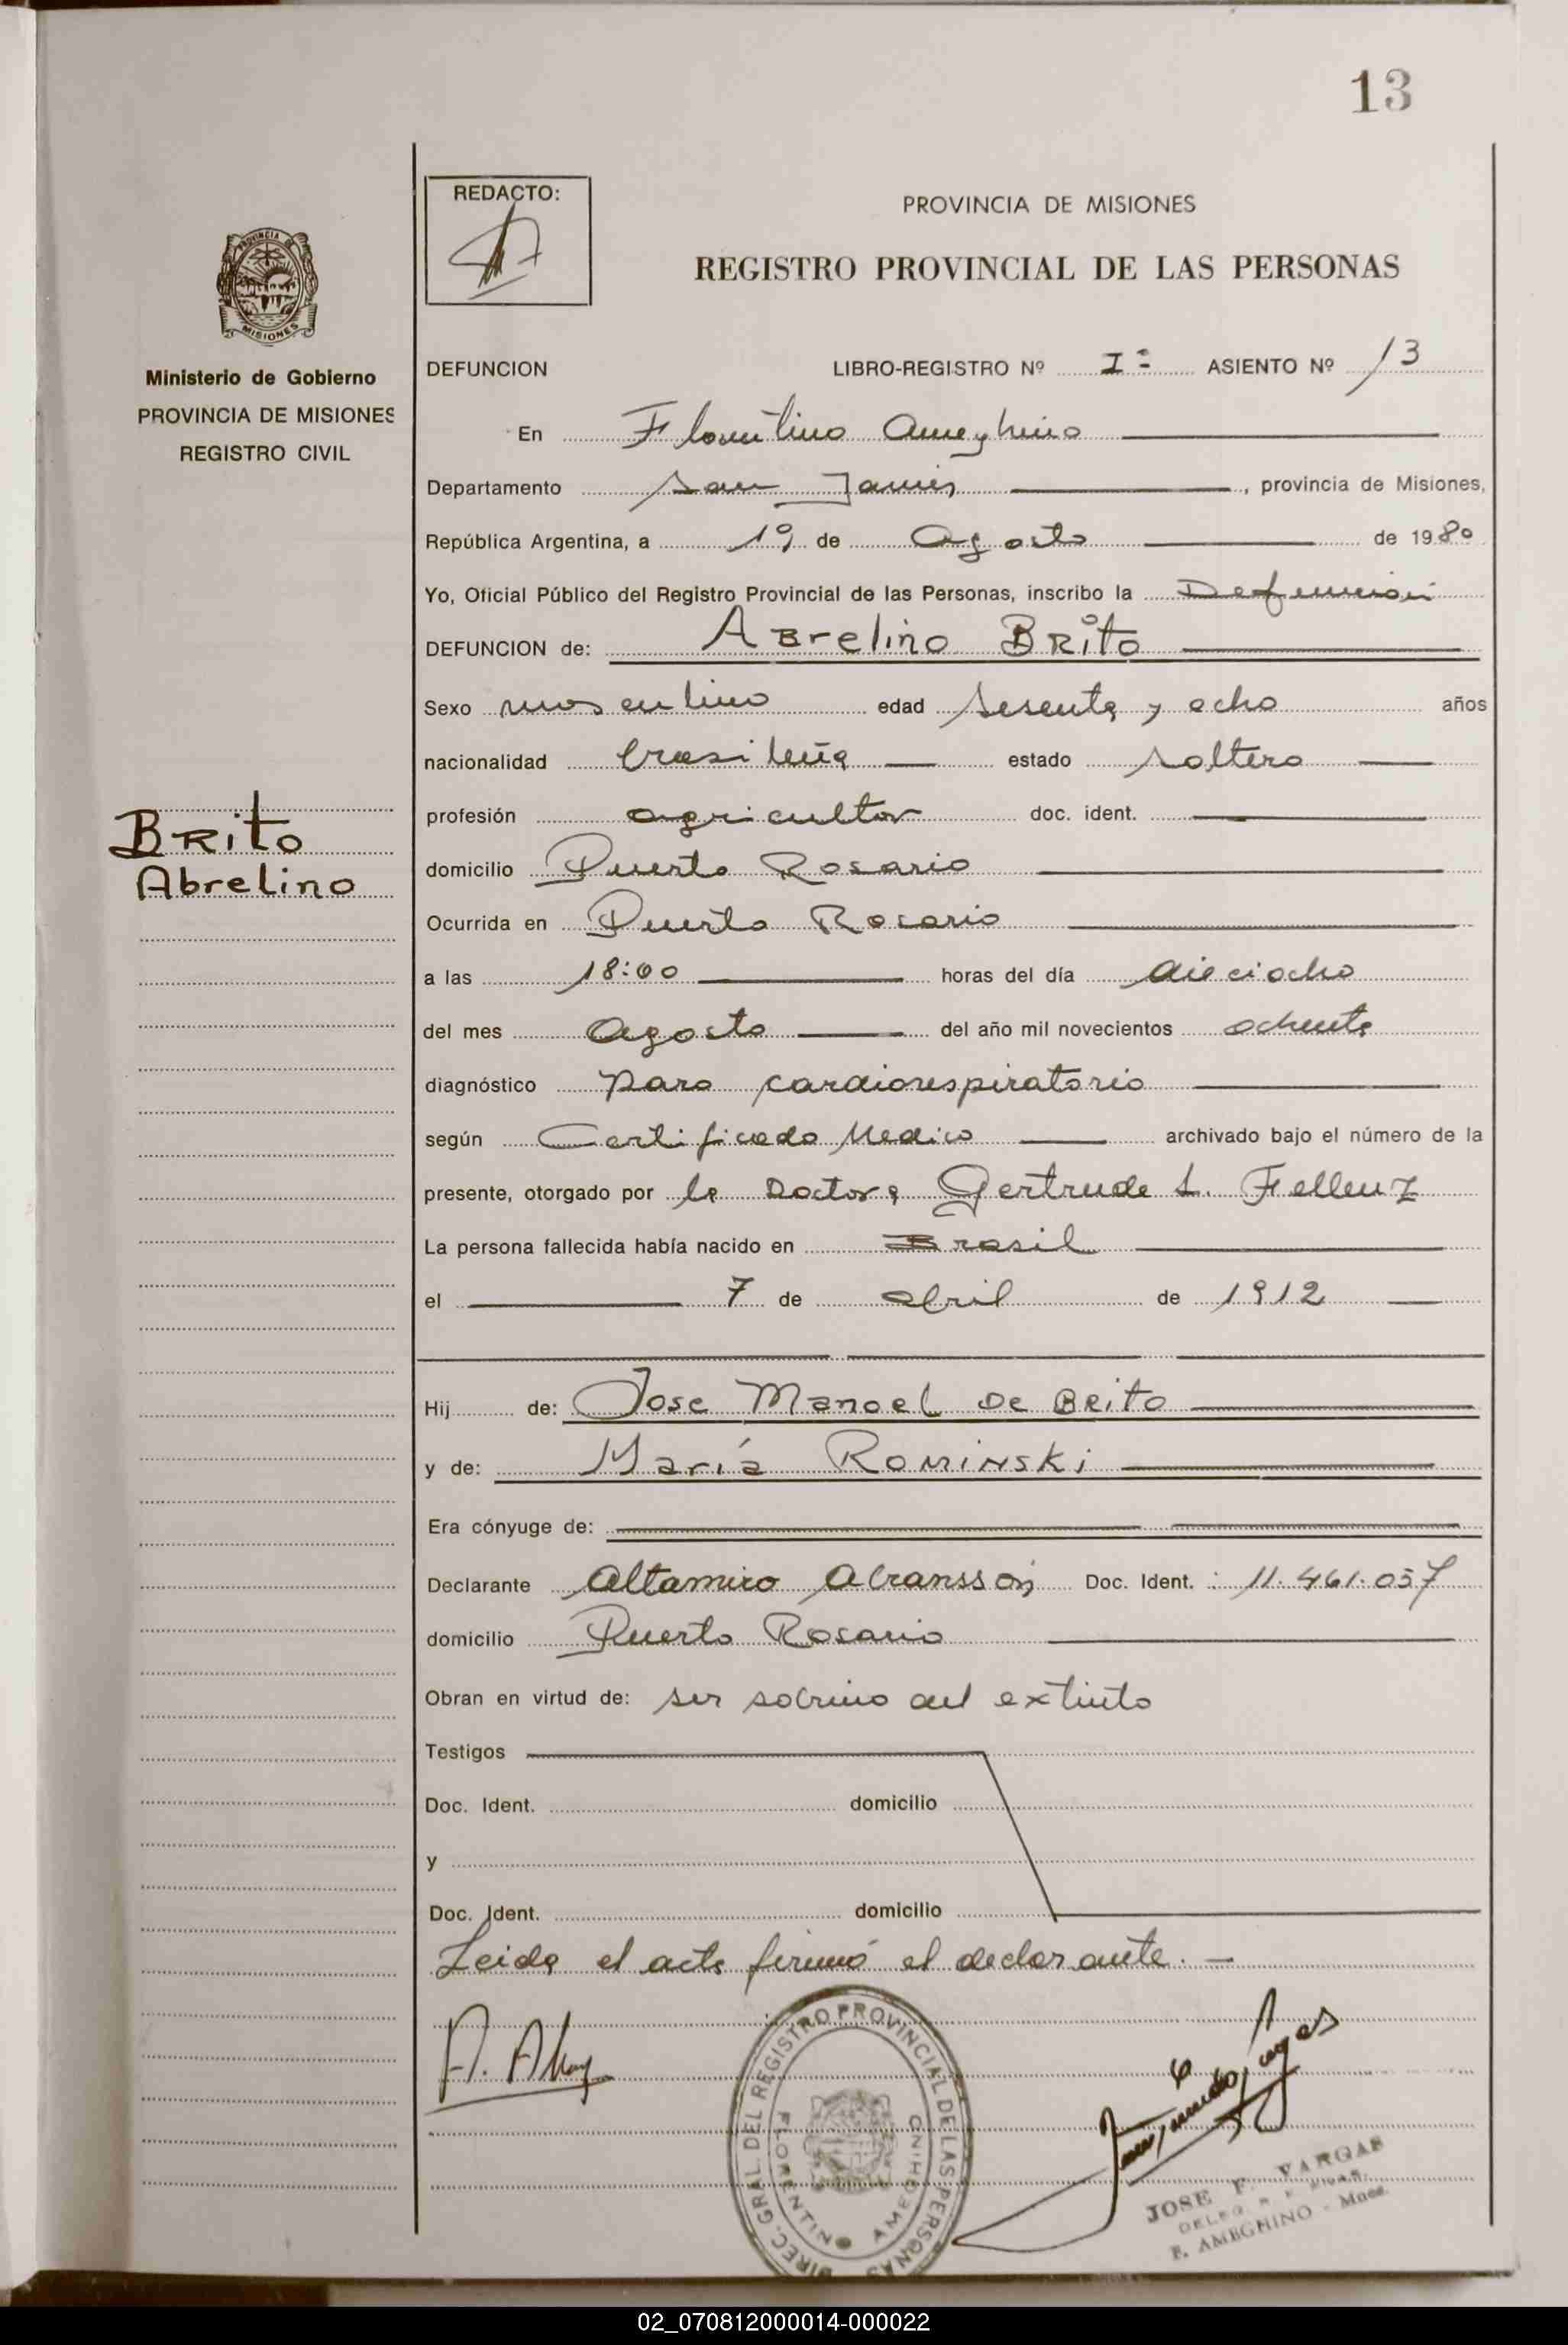 13
REDACTO:
PROVINCIA DE MISIONES
REGISTRO PROVINCIAL DE LAS PERSONAS
PROVINCIA DE
MISIONES
Ministerio de Gobierno
PROVINCIA DE MISIONES
REGISTRO CIVIL
DEFUNCION LIBRO-REGISTRO Nº Iº ASIENTO Nº 13
En Florentino Ameghino
Departamento San Javier, provincia de Misiones,
República Argentina, a 19 de Agosto de 1980
Yo, Oficial Público del Registro Provincial de las Personas, inscribo la Defunción
DEFUNCION de: Abrelino Brito
Sexo masculino edad sesenta y ocho años
nacionalidad brasileña estado soltero
profesión agricultor doc. ident.
Brito
Abrelino
domicilio Puerto Rosario
Ocurrida en Puerto Rosario
a las 18:00 horas del día dieciocho
del mes Agosto del año mil novecientos ochenta
diagnóstico Paro cardiorespiratorio
según Certificado Medico archivado bajo el número de la
presente, otorgado por la Doctora Gertrude L. Fellenz
La persona fallecida había nacido en Brasil
el 7 de abril de 1912
Hij de: Jose Manoel De Brito
y de: María Rominski
Era cónyuge de:
Declarante Altamiro Abransson Doc. Ident. : 11.461.057
domicilio Puerto Rosario
Obran en virtud de: ser sobrino del extinto
Testigos
Doc. Ident. domicilio
y
Doc. Ident. domicilio
Leida el acta firmó el declarante. —
DIREC. GRAL. DEL REGISTRO PROVINCIAL DE LAS PERSONAS
FLORENTINO AMEGHINO
JOSE F. VARGAS
F. AMEGHINO - Mnes.
02_070812000014-000022